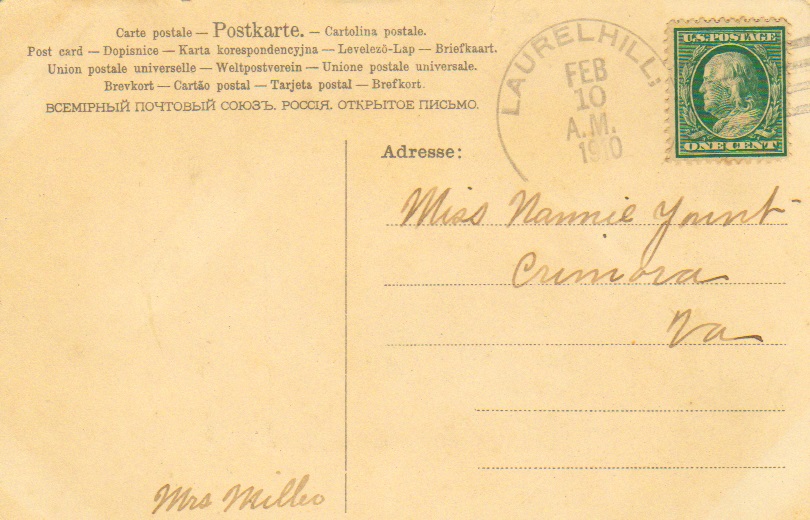 Carte postale — Postkarte. — Cartolina postale.
Post card — Dopisnice — Karta korespondencyjna — Levelező-Lap — Briefkaart.
Union postale universelle — Weltpostverein — Unione postale universale.
Brevkort — Cartão postal — Tarjeta postal — Brefkort.
ВСЕМІРНЫЙ ПОЧТОВЫЙ СОЮЗЪ. РОССІЯ. ОТКРЫТОЕ ПИСЬМО.
LAURELHILL,
FEB
10
A.M.
1910
U.S. POSTAGE
ONE CENT
Adresse:
Miss Nannie Yount
Crimora
Va
Mrs Miller